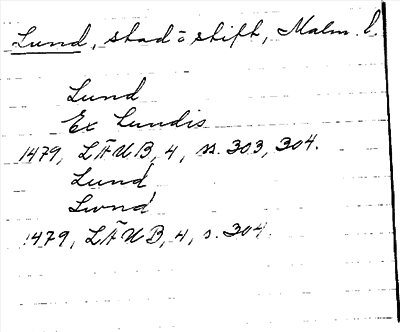 Lund, stad o stift, Malm. l.
Lund
Ex Lundis
1479, LÄUB, 4, ss. 303, 304.
Lund
Lwnd
1479, LÄUB, 4, s. 304.